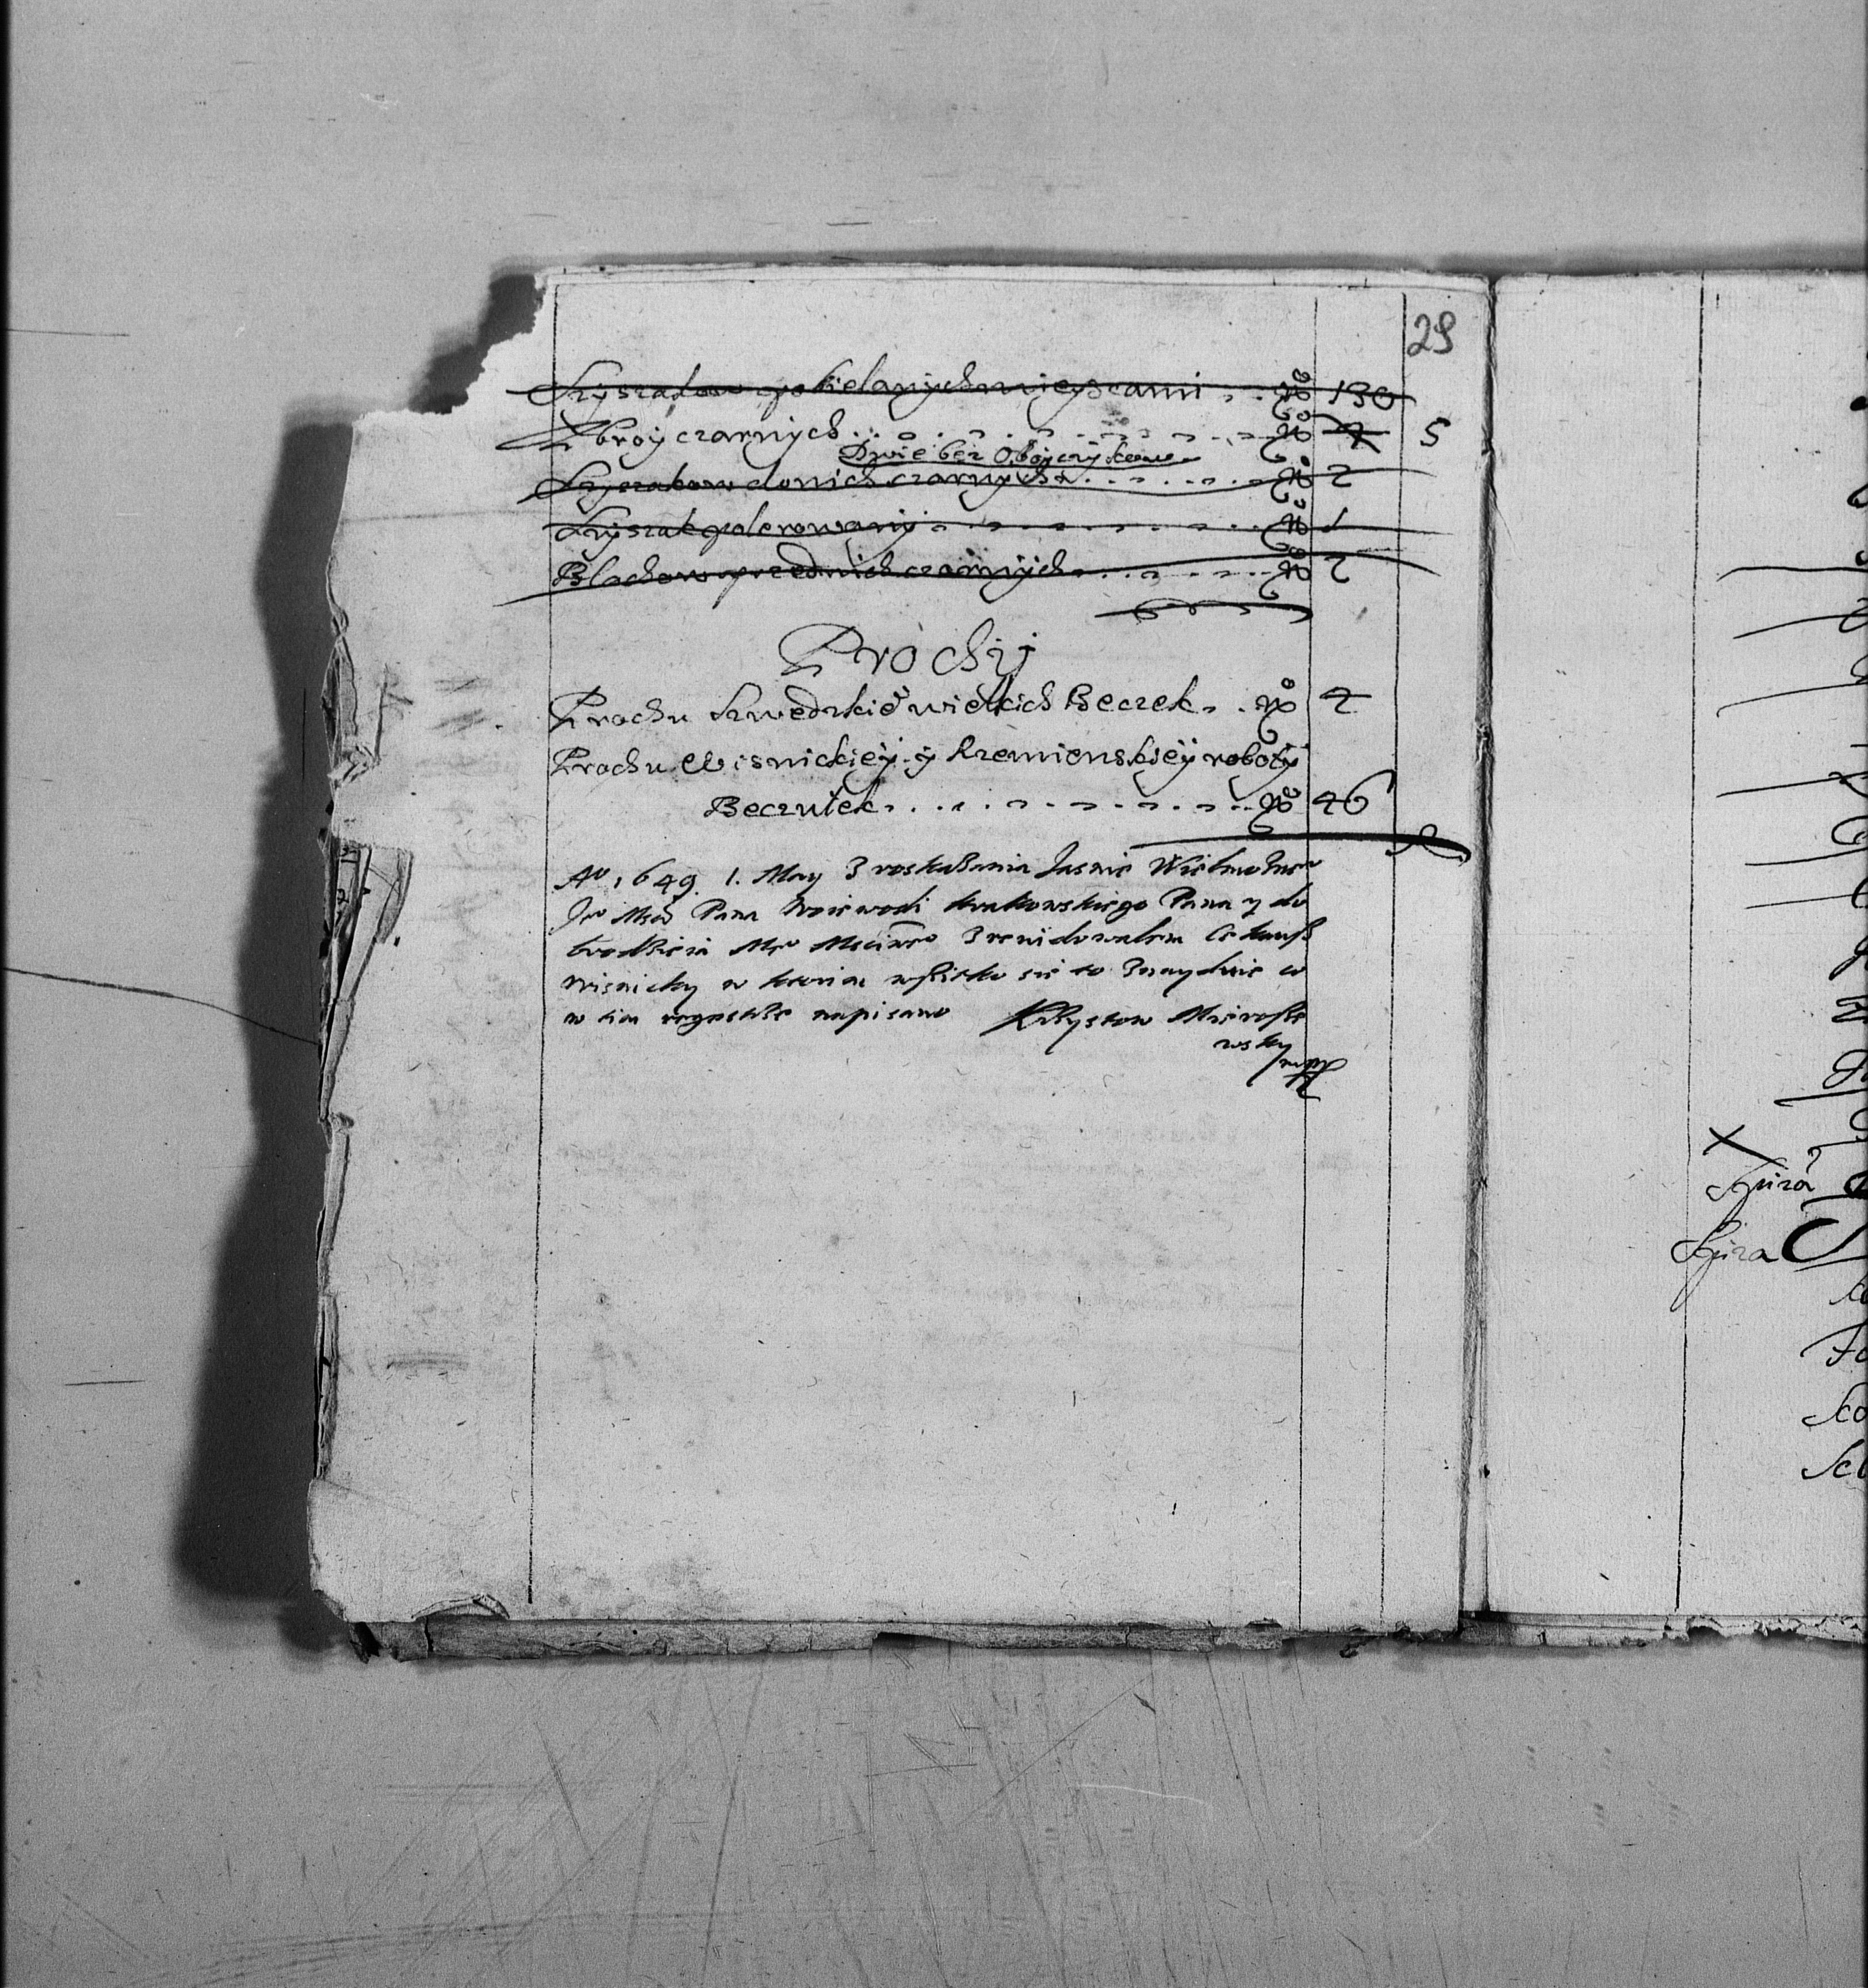 29
Szyszakow pobielanych mieyscami . . No 130
Zbroy czarnych . . . . . . . No 7 5
Dwie bez Oboyczykow
Szyszakow donich czarnych . . . . . No 2
Szyszak polerowany . . . . . . No 1
Blachow przednich czarnych . . . . . No 2
Prochy
Prochu Szwedzkie wielkich Beczek . . No 2
Prochu Wisnickiey y Krzemienskiey roboty
Beczułek . . . . . . . . . . No 46
Ao 1649. 1. May Z roskazania Jasnie Wielmoznego
Je Mści Pana Woiewodi Krakowskiego Pana y do
brodzieia Mo Mściwo Zrewidowalem Cekauz
Wisnicky w ktorim wszitko sie to Znayduie co
w tim regestrze napisano Krzysztow Mieroszo
wsky
mpp
X
Spiza
Spiza